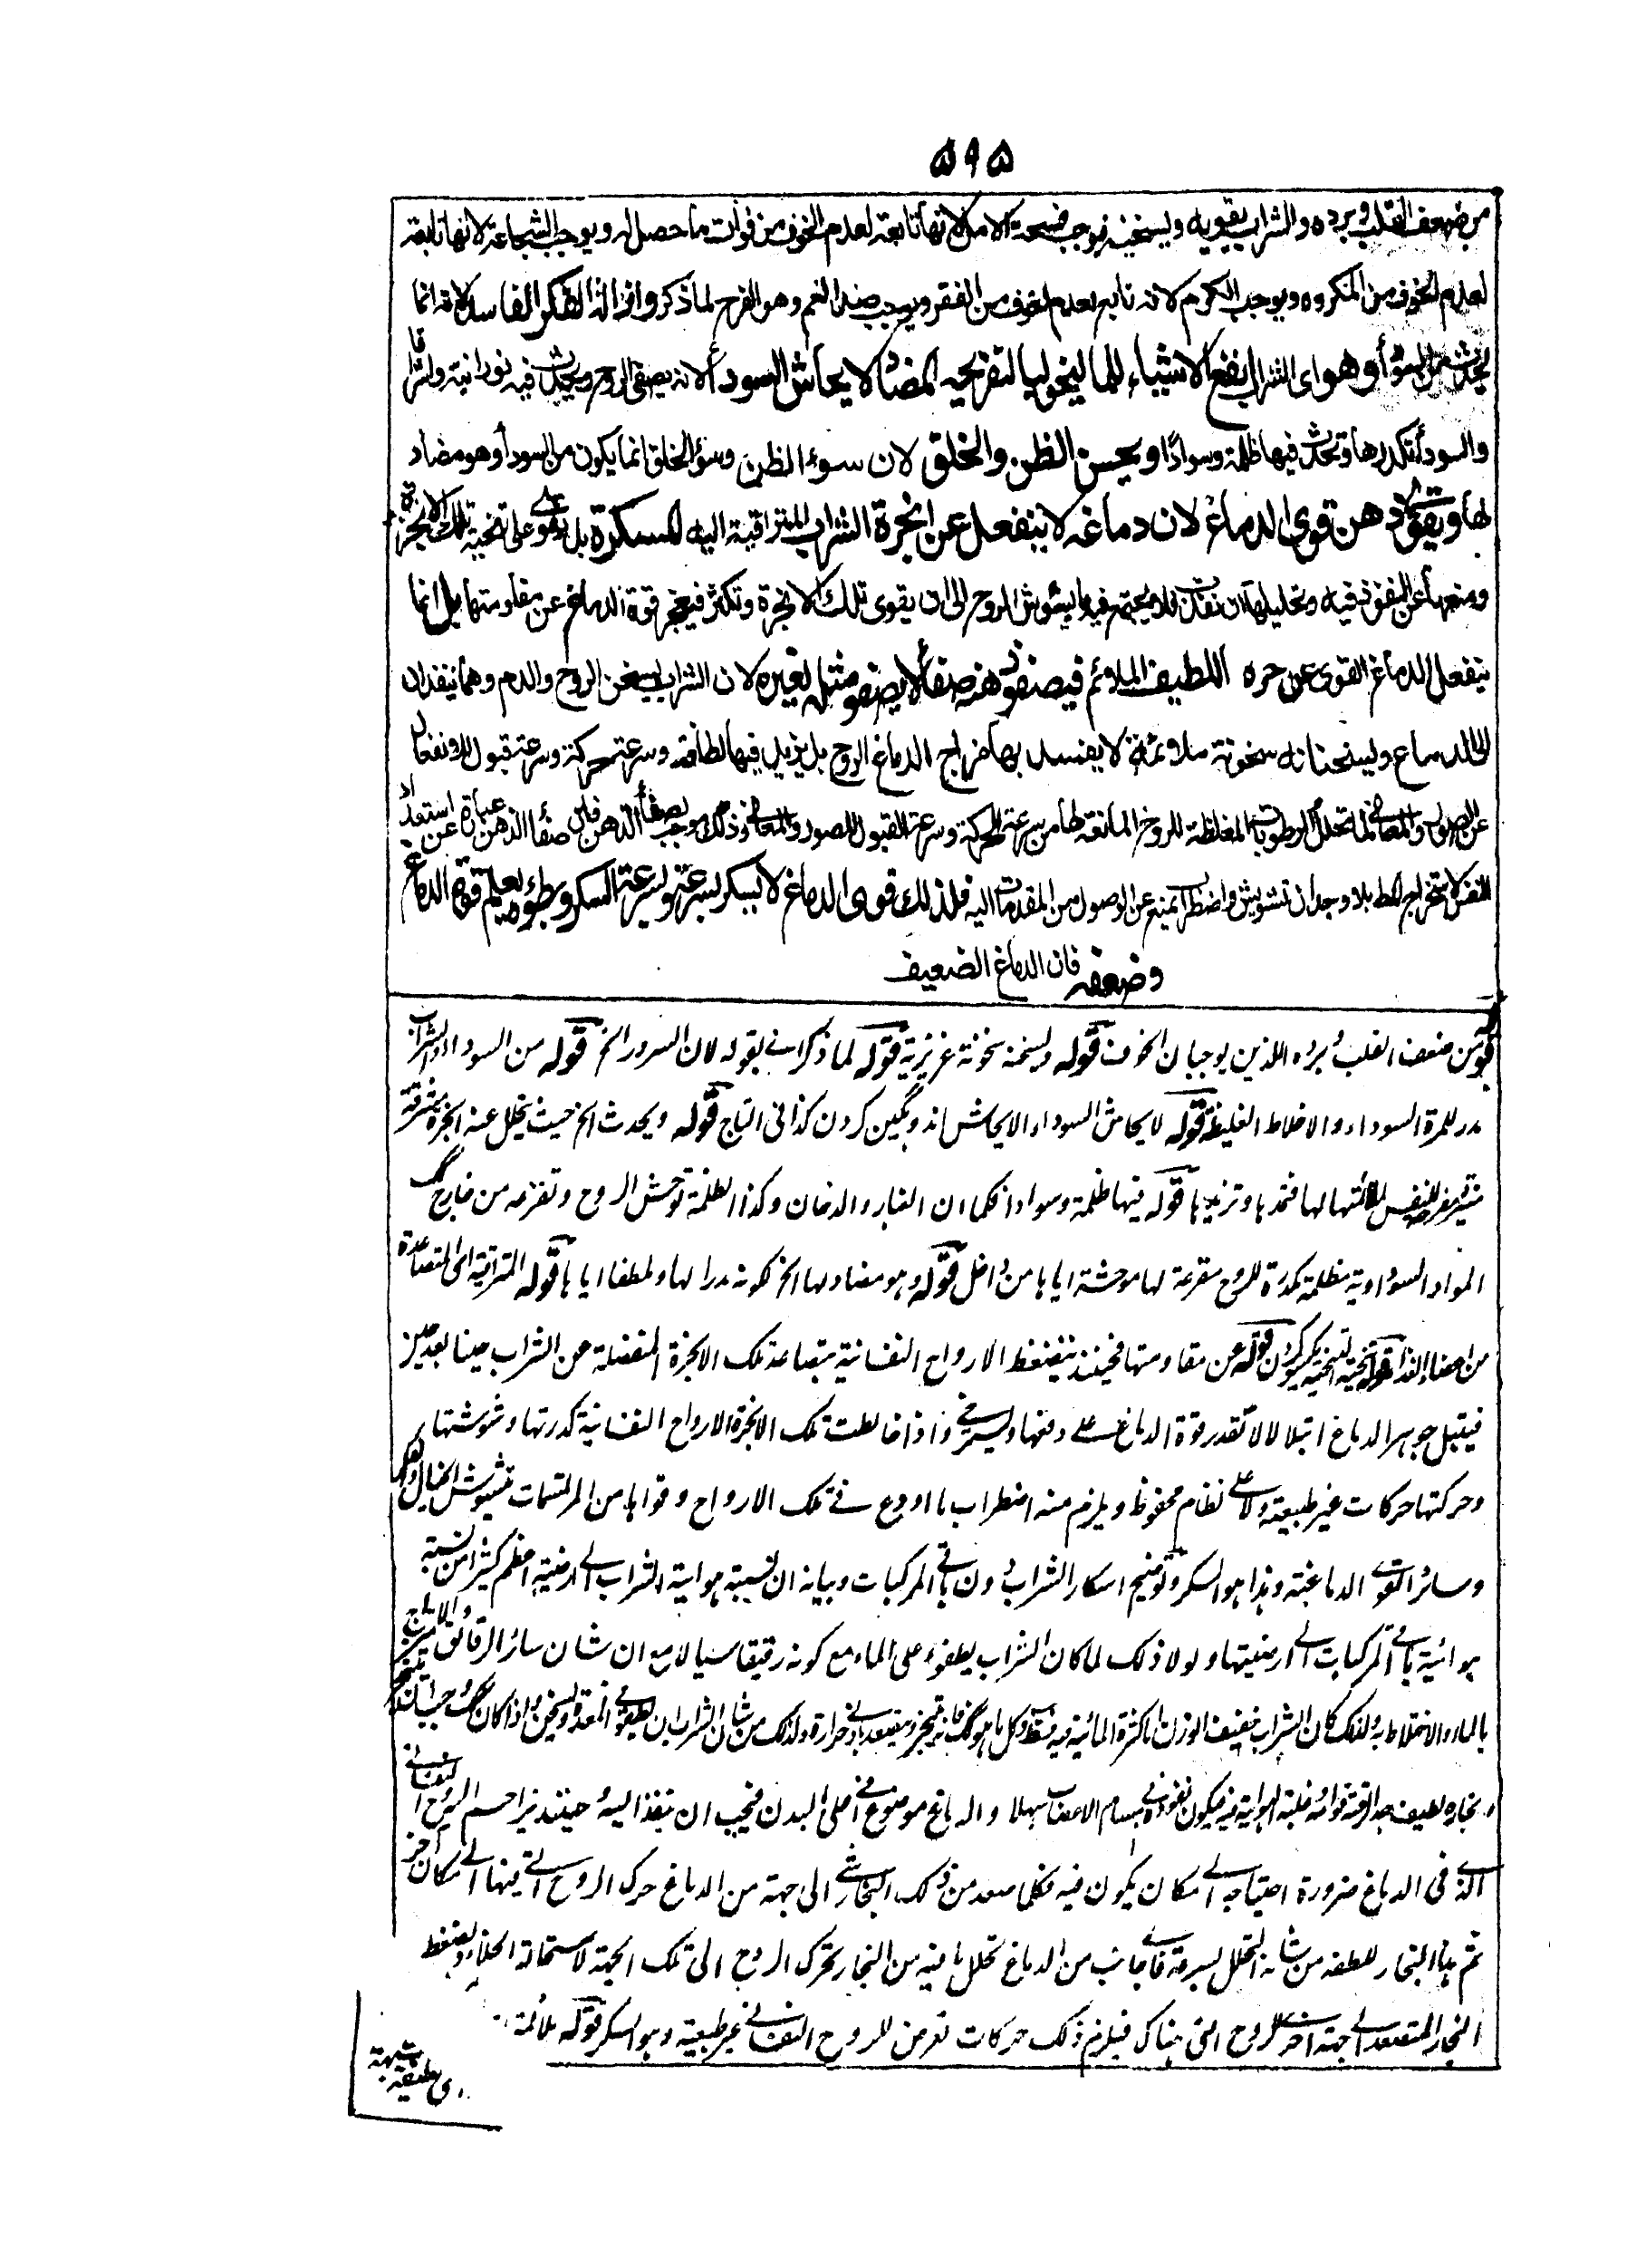 ٥٩٥
من ضعف القلب وبرده والشراب يقويه ويسخنه فيوجب فسحة الامل لانها تابعة لعدم الخوف من فوات ما حصل له ويوجب الشجاعة لانها تابعة
لعدم الخوف من المكروه ويوجب الكرم لانه تابع لعدم الخوف من الفقر ويوجب ضد الغم وهو الفرح لما ذكر وازالة الفكر الفاسد لانه انما
يحدث من السوداء وهو اى الشراب انفع الاشياء للماليخوليا لتفريحه المضاد لايحاش السوداء لانه يصفى الروح ويحدث فيه نورانية واشراقا
والسوداء تكدرها وتحدث فيها ظلمة وسوادا ويحسن الظن والخلق لان سوء الظن وسوء الخلق انما يكون من السوداء وهو مضاد
لها ويقوى ذهن قوى الدماغ لان دماغه لا ينفعل عن ابخرة الشراب المتراقية اليه المسكرة بل يقوى على تنحية تلك الابخرة
ومنعها عن النفوذ فيه وتحليلها ان نفذت فلا يجتمع فيه ما يشوش الروح الى ان يقوى تلك الابخرة وتكثر فيعجز قوة الدماغ عن مقاومتها بل انما
ينفعل الدماغ القوى عن حره اللطيف الملائم فيصفو ذهنه صفاء لا يصفو مثله لغيره لان الشراب يسخن الروح والدم وهما ينفذان
الى الدماغ ويسخنانه سخونة ملائمة لا يفسد بها مزاج الدماغ والروح بل يزيد فيها لطافة وسرعة حركة وسرعة قبول للانفعال
عن الصور والمعانى لما تحلل الرطوبات المغلظة للروح المانعة لها من سرعة الحركة وسرعة القبول للصور والمعانى وذلك موجب لصفاء الذهن فان صفاء الذهن عبارة عن استعداد
النفس لاستخراج المط بلا وجدان تشويش واضطراب يمنع عن الوصول من المقدمات اليه فلذلك قوى الدماغ لا يسكر بسرعة وبسرعة السكر وبطؤه يعلم قوة الدماغ
وضعفه فان الدماغ الضعيف
قوله من ضعف القلب وبرده اللذين يوجبان الخوف قوله ويسخنه سخونة غريزية قوله لما ذكر اى بقوله لان السرور الخ قوله من السوداء والشراب
مدر للمرة السوداء والاخلاط الغليظة قوله لايحاش السوداء الايحاش اندوهگين كردن كذا فى التاج قوله ويحدث الخ حيث يتحلل عنه ابخرة مشرقة
للنفس لملائمتها لها فتمدها وتزيدها قوله فيها ظلمة وسوادا فكما ان الغبار والدخان وكذا الظلمة توحش الروح وتفزعه من خارج كك
المواد السوداوية مظلمة مكدرة للروح مفزعة لها موحشة اياها من داخل قوله وهو مضاد لها الخ لكونه مدرا لها وملطفا اياها قوله المتراقية اى المتصاعدة
من قوله عن مقاومتها فحينئذ ينضغط الارواح النفسانية بتصاعد تلك الابخرة المنفصلة عن الشراب حينا بعد حين
فيبتل جوهر الدماغ ابتلالا لا تقدر قوة الدماغ على دفعها ويسترخى واذا خالطت تلك الابخرة الارواح النفسانية كدرتها وشوشتها
وحركتها حركات غير طبيعية ولا على نظام محفوظ ويلزم منه اضطراب ما اودع فى تلك الارواح وقواها من المرتسمات فيتشوش الخيال والفكر
وسائر القوى الدماغية وهذا هو السكر وتوضيح اسكار الشراب دون باقى المركبات وبيانه ان نسبة هوائية الشراب الى ارضيته اعظم كثيرا من نسبة
هوائية باقى المركبات الى ارضيتها ولولا ذلك لما كان الشراب يطفو على الماء مع كونه رقيقا سيالا مع ان شان سائر الرقائق
بالماء والاختلاط به ولذلك كان الشراب خفيف الوزن
فيكون نفوذه فى مسام الاعصاب سهلا والدماغ موضوع فى اعلى البدن فيجب ان ينفذ اليه وحينئذ يزاحم الروح النفسانى
الذى فى الدماغ ضرورة احتياجه الى مكان يكون فيه فكلما صعد من ذلك البخار شئ الى جهة من الدماغ حرك الروح التى فيها الى مكان آخر
ثم هذا البخار للطفه من شانه التحلل بسرعة فاى جانب من الدماغ تحلل ما فيه من البخار تحرك الروح الى تلك الجهة لاستحالة الخلاء ويضغط
البخار المتصعد الى جهة اخرى للروح التى هناك فيلزم ذلك حركات تعرض للروح النفسانى غير طبيعية وهو السكر قوله ملائمة